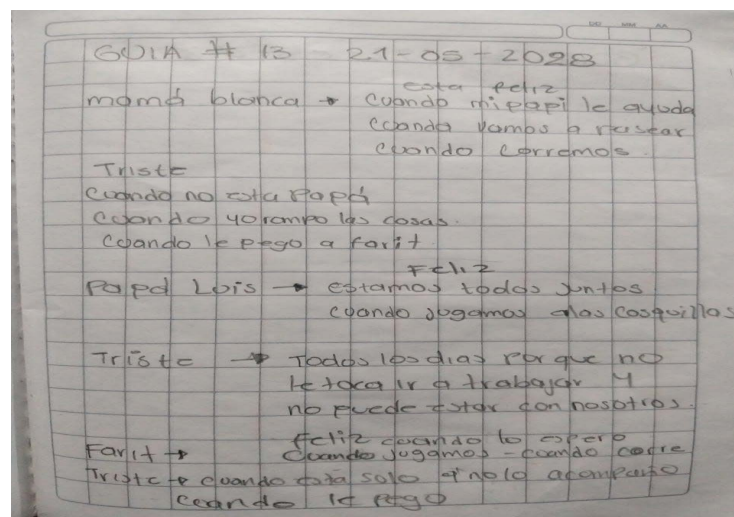 GUIA # 13 21-05-2028
esta feliz
mamá blanca → Cuando mi papi le ayuda
cuando vamos a pasear
cuando corremos.
Triste
Cuando no esta Papá
Cuando yo rompo las cosas.
Cuando le pego a farit
Feliz
Papá Luis → estamos todos juntos
cuando jugamos alas cosquillas
Triste → Todos los dias por que no
le toca ir a trabajar y
no puede estar con nosotros.
feliz cuando lo espero
Farit → Cuando jugamos - cuando corre
Triste + cuando está solo y no lo acompaño
cuando le pego